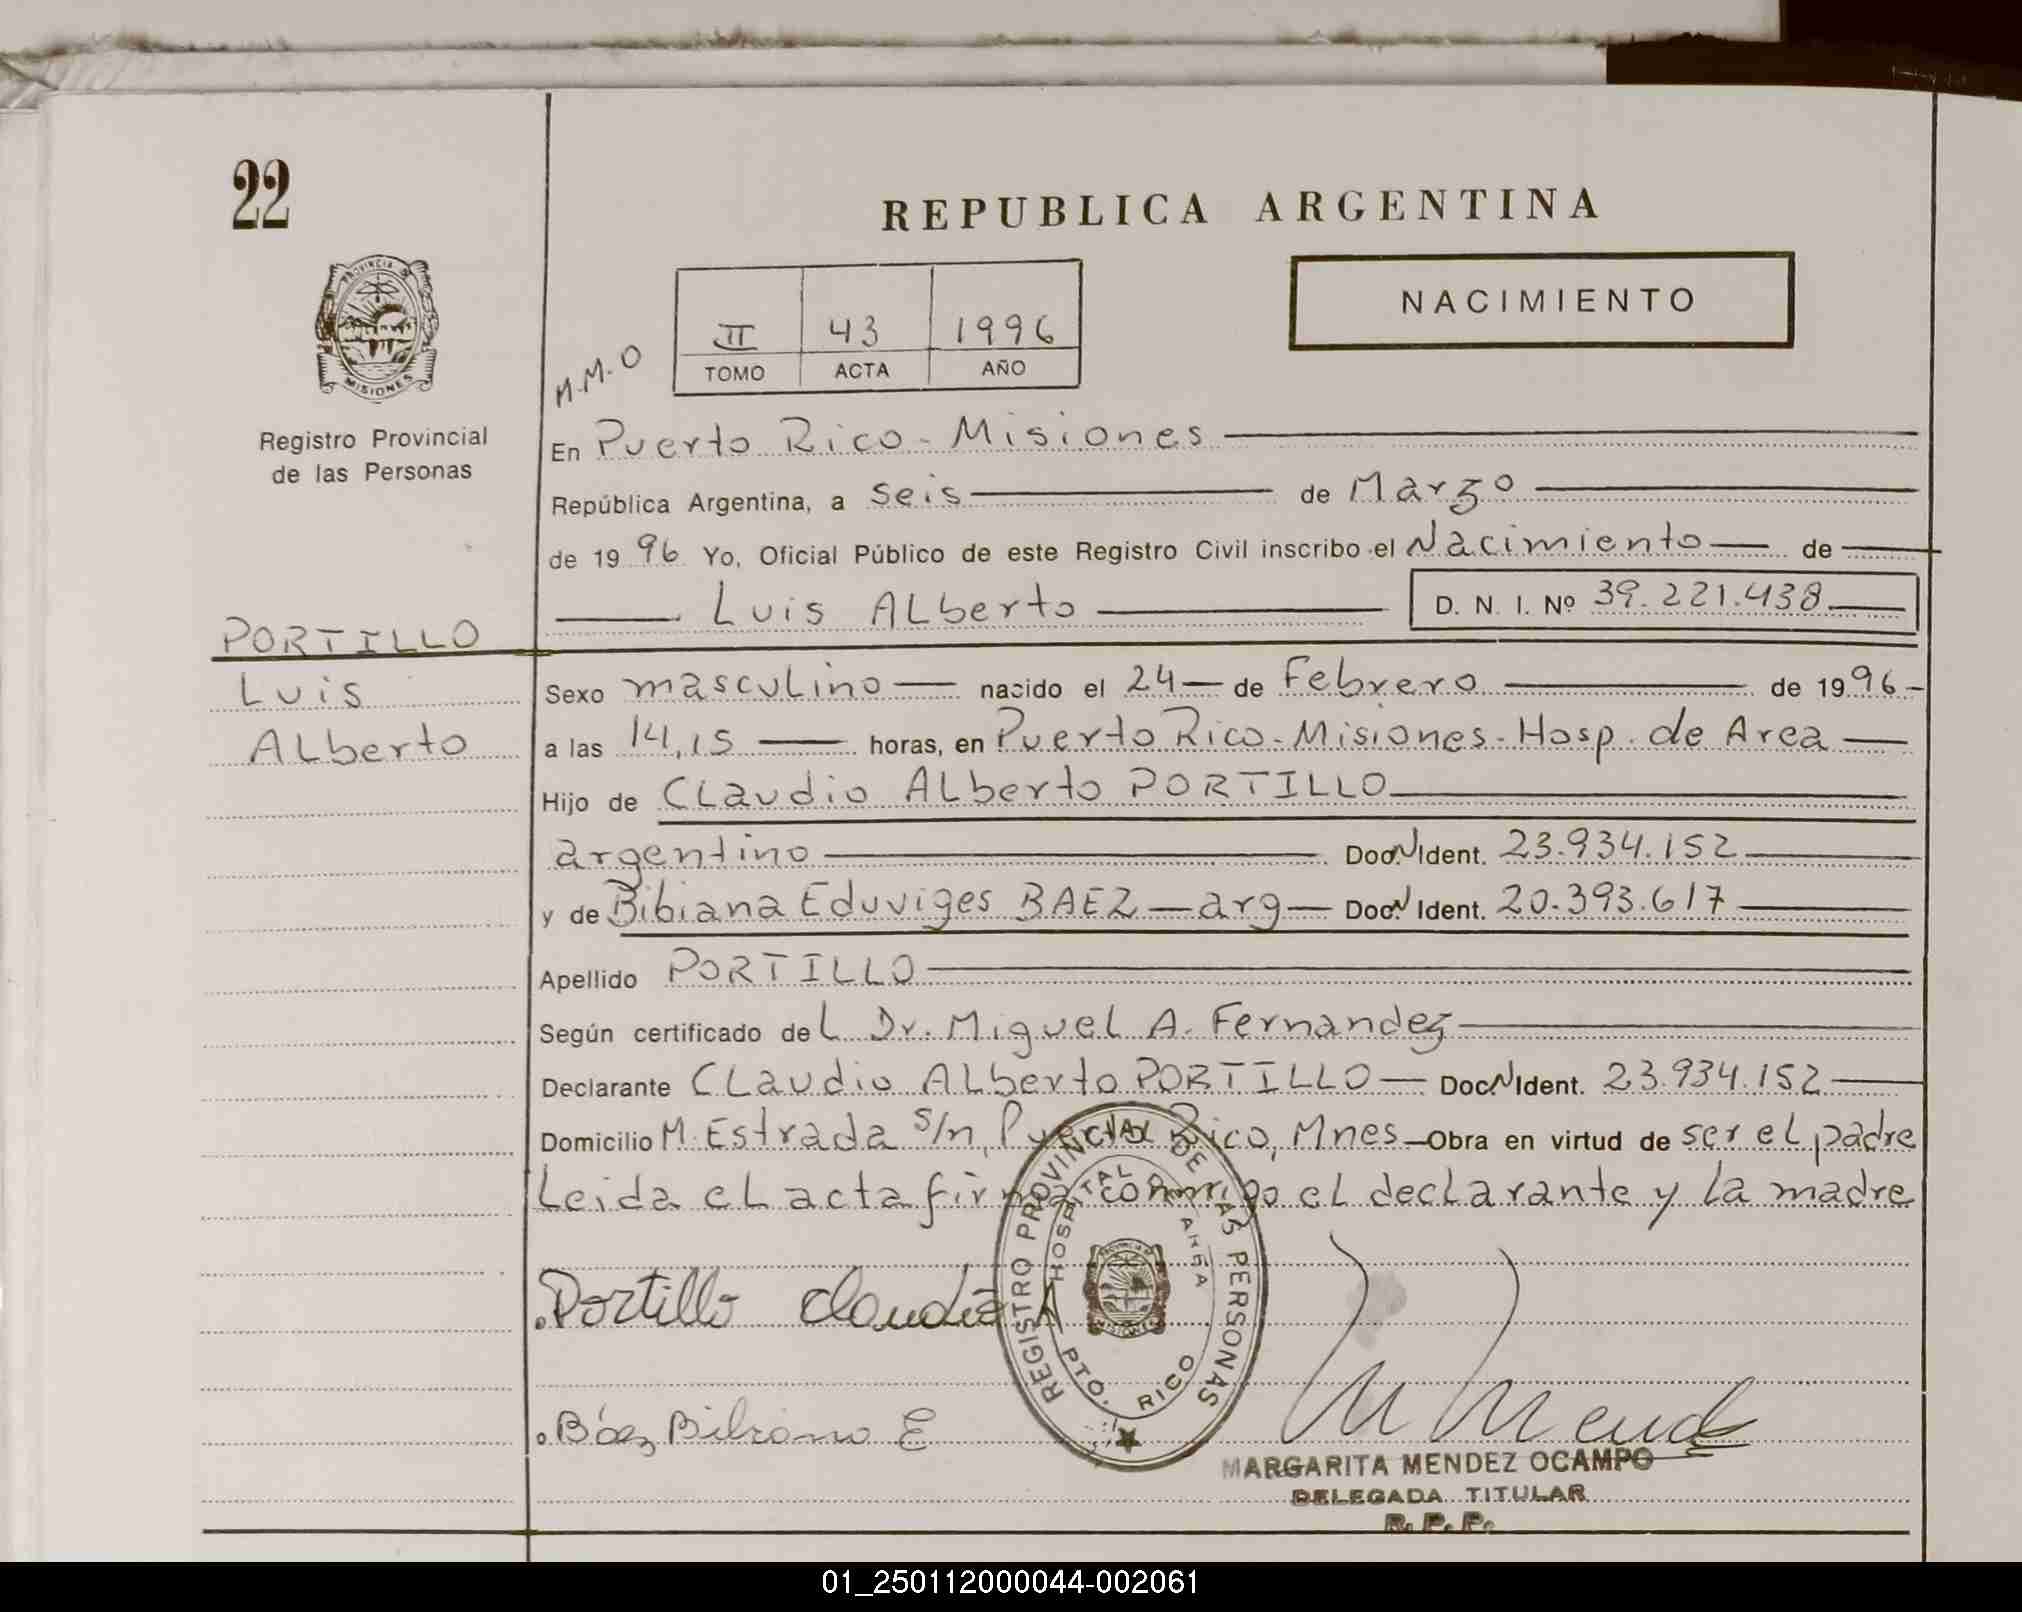 22
REPUBLICA ARGENTINA
PROVINCIA DE
MISIONES
NACIMIENTO
II 43 1996
TOMO ACTA AÑO
M.M.O
Registro Provincial
de las Personas
En Puerto Rico - Misiones
República Argentina, a seis de Marzo
de 1996 Yo, Oficial Público de este Registro Civil inscribo el Nacimiento de
Luis ALberto D. N. I. Nº 39.221.438
PORTILLO
Luis
ALberto
Sexo mascuLino nacido el 24 de Febrero de 1996
a las 14,15 horas, en Puerto Rico - Misiones - Hosp. de Area
Hijo de CLaudio ALberto PORTILLO
argentino Doc. N Ident. 23.934.152
y de Bibiana Eduviges BAEZ - arg - Doc. N Ident. 20.393.617
Apellido PORTILLO
Según certificado deL Dr. MigueL A. Fernandez
Declarante CLaudio ALberto PORTILLO Doc. N Ident. 23.934.152
Domicilio M. Estrada s/n, Puerto Rico, Mnes Obra en virtud de ser eL padre
Leida eL acta firma conmigo eL decLarante y La madre
REGISTRO PROVINCIAL DE LAS PERSONAS
HOSPITAL DE AREA
PTO. RICO
MISIONES
Portillo Claudio A
Báez Bibiana E
M Mend
MARGARITA MENDEZ OCAMPO
DELEGADA TITULAR
R. P. P.
01_250112000044-002061